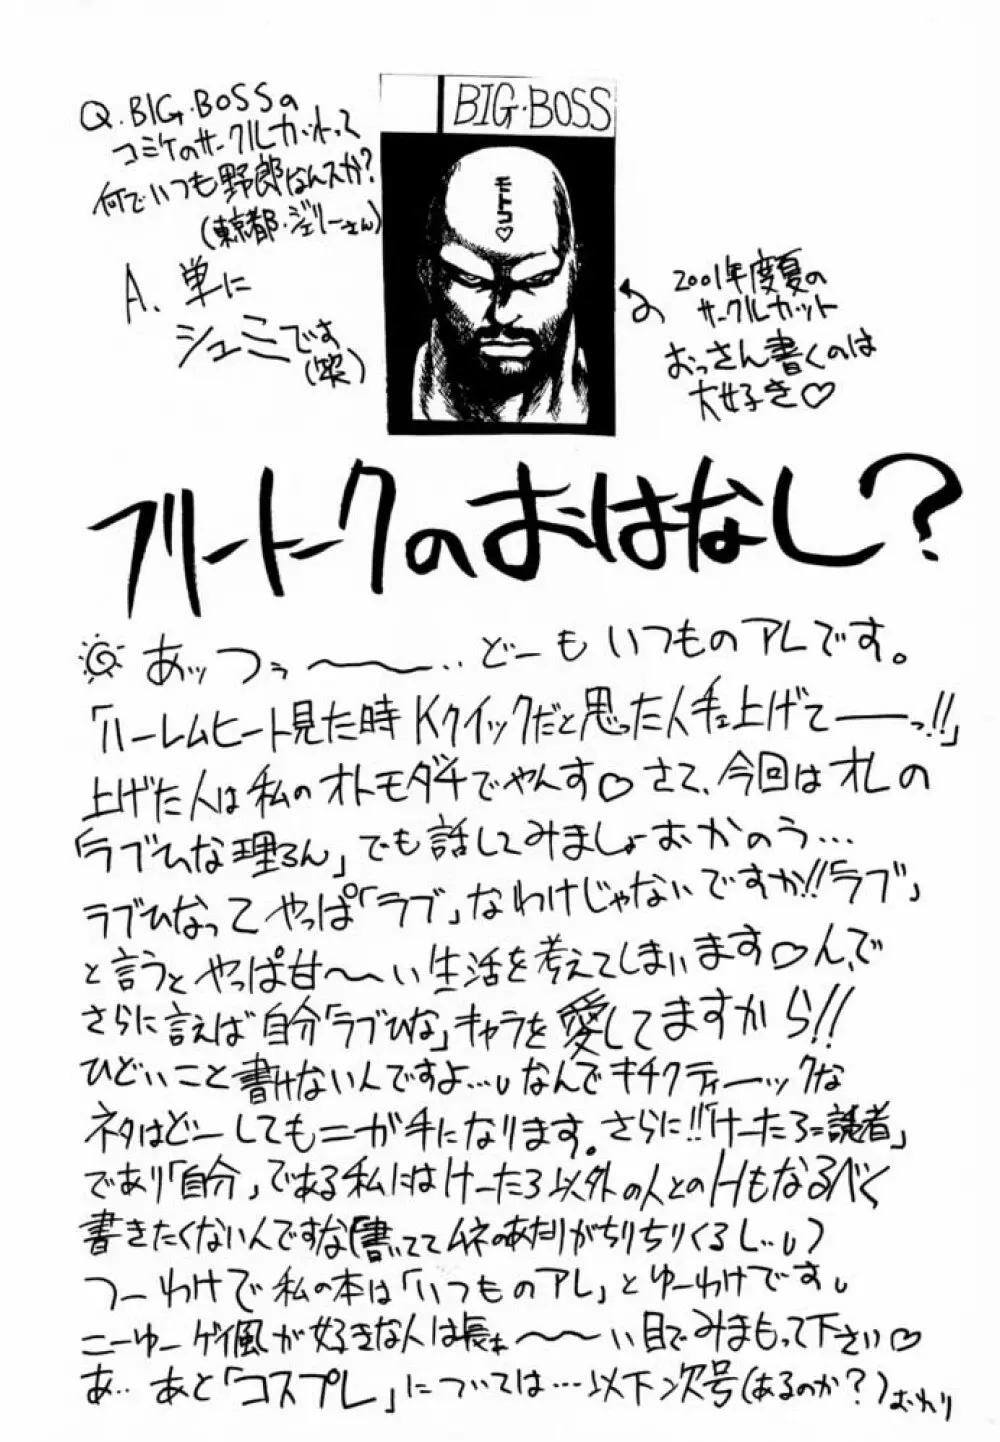 Q.BIG・BOSSの
コミケのサークルカットって
何でいつも野郎なんスか?
(東京都・ジェリーさん)
A.単に
シュミです
(笑)
BIG・BOSS
モトコ♡
2001年度夏の
サークルカット
おっさん書くのは
大好き♡
フリートークのおはなし?
あッつぅ〜〜‥どーもいつものアレです。
「ハーレムヒート見た時Kクイックだと思った人手ェ上げてーーっ!!」
上げた人は私のオトモダチでやんす♡さて、今回はオレの
「ラブひな理ろん」でも話してみましょおかのう…
ラブひなってやっぱ「ラブ」なわけじゃないですか!!「ラブ」
と言うとやっぱ甘〜い生活を考えてしまいます♡んで
さらに言えば自分「ラブひな」キャラを愛してますから!!
ひどいこと書けないんですよ…。なんでキチクティーックな
ネタはどーしてもニガ手になります。さらに!!「けーたろ=読者」
であり「自分」である私にはけーたろ以外の人とのHもなるべく
書きたくないんですな(書いててムネのあたりがちりちりくるし‥)
つーわけで私の本は「いつものアレ」とゆーわけです。
ニーゆーゲイ風が好きな人は長ぁ〜〜い目でみまもって下さい♡
あ‥あと「コスプレ」については…以下次号(あるのか?)おわり